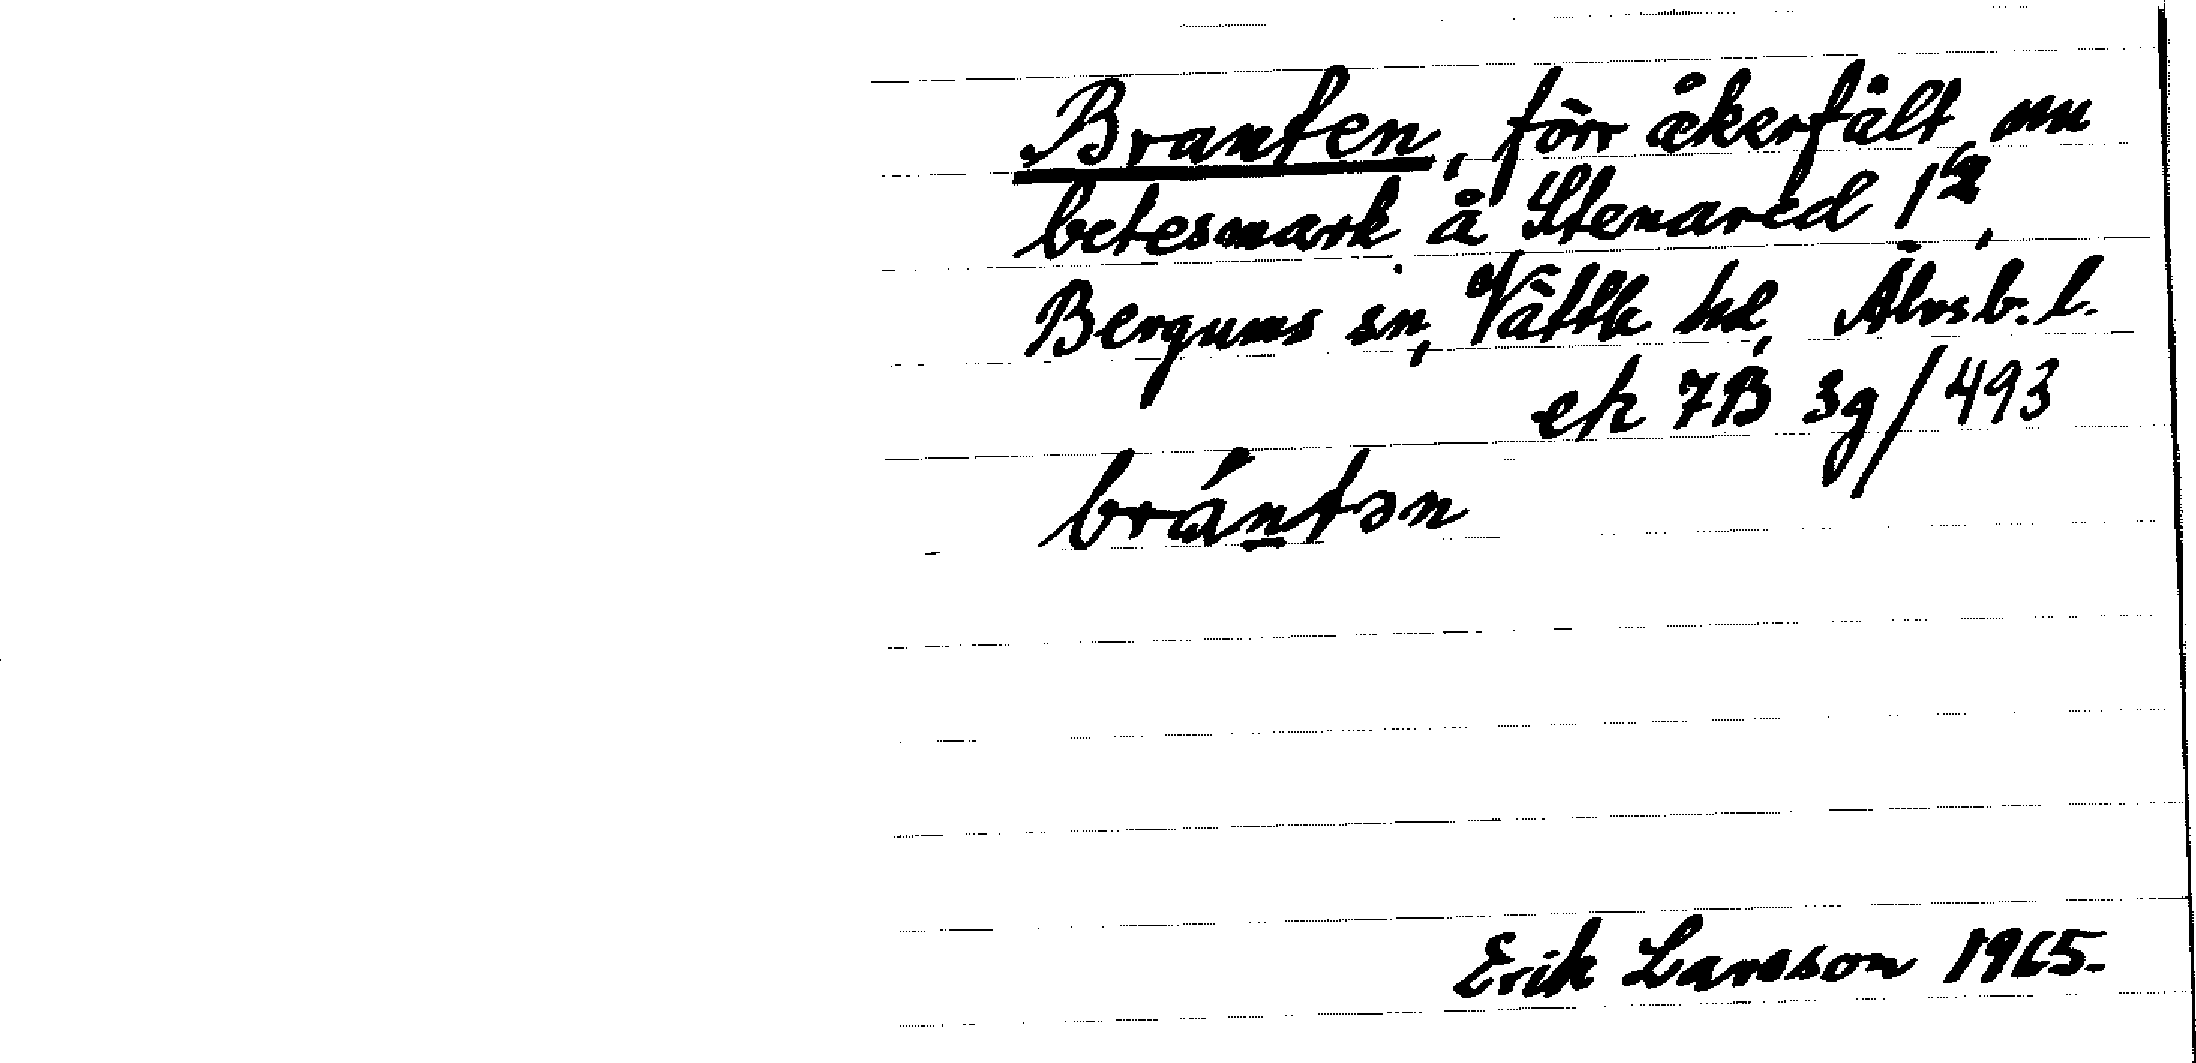 Branten, förr åkerfält, nu
betesmark å Stenared 1⁶²,
Bergums sn, Vättle hd, Älvsb. l.
ek 7B 3g/493
brántən
Erik Larsson 1965.